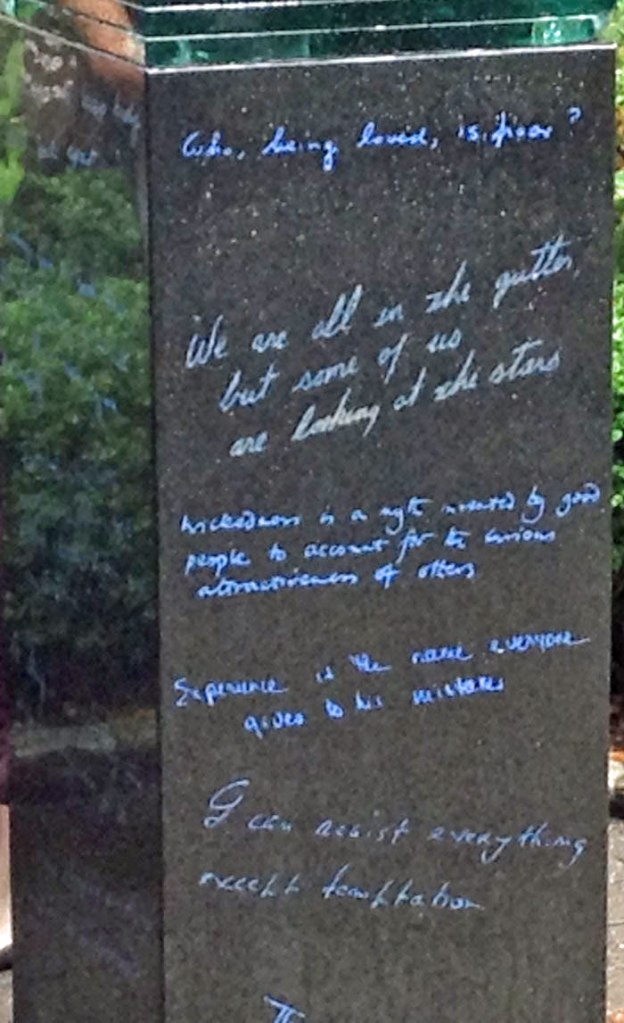 Who, being loved, is poor?
We are all in the gutter,
but some of us
are looking at the stars
Wickedness is a myth invented by good
people to account for the curious
attractiveness of others
Experience is the name everyone
gives to his mistakes
I can resist everything
except temptation